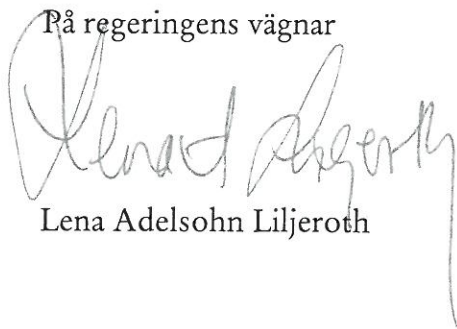 På regeringens vägnar
Lena Adelsohn Liljeroth